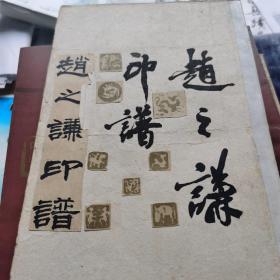 趙之謙
印譜
趙之謙印譜